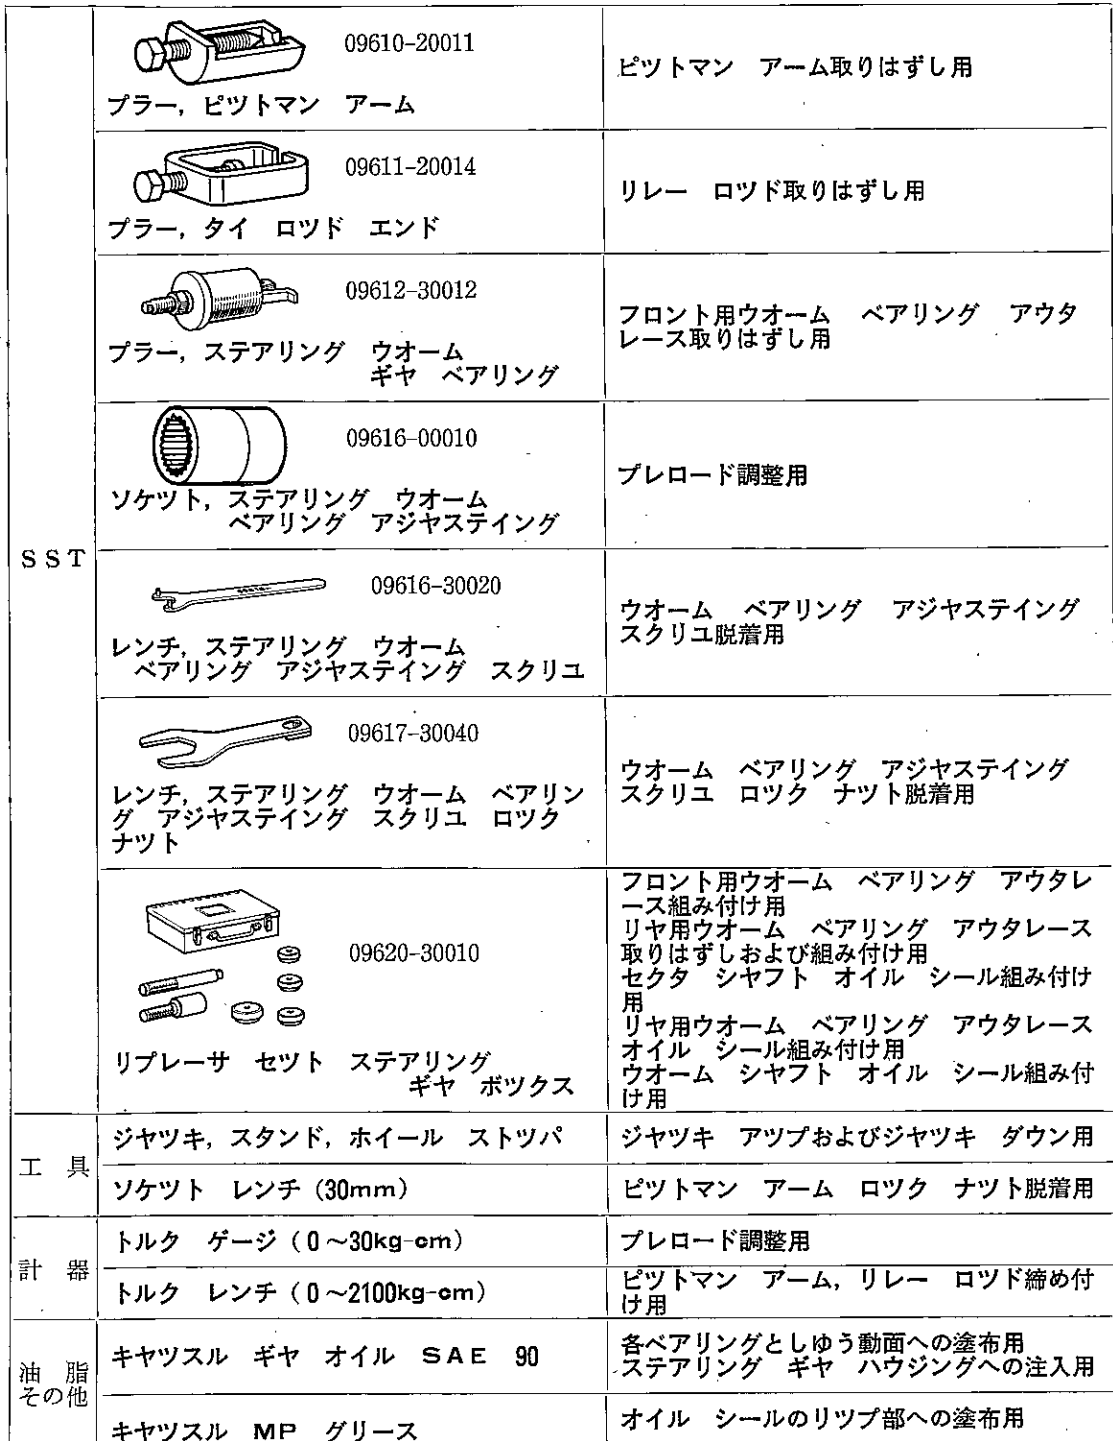 09610-20011
プラー，ピツトマン　アーム
ピツトマン　アーム取りはずし用
09611-20014
プラー，タイ　ロツド　エンド
リレー　ロツド取りはずし用
09612-30012
プラー，ステアリング　ウオーム
ギヤ　ベアリング
フロント用ウオーム　ベアリング　アウタ
レース取りはずし用
09616-00010
ソケツト，ステアリング　ウオーム
ベアリング　アジヤステイング
プレロード調整用
SST
09616-30020
レンチ，ステアリング　ウオーム
ベアリング　アジヤステイング　スクリユ
ウオーム　ベアリング　アジヤステイング
スクリユ脱着用
09617-30040
レンチ，ステアリング　ウオーム　ベアリン
グ　アジヤステイング　スクリユ　ロツク
ナツト
ウオーム　ベアリング　アジヤステイング
スクリユ　ロツク　ナツト脱着用
09620-30010
リプレーサ　セツト　ステアリング
ギヤ　ボツクス
フロント用ウオーム　ベアリング　アウタレ
ース組み付け用
リヤ用ウオーム　ベアリング　アウタレース
取りはずしおよび組み付け用
セクタ　シヤフト　オイル　シール組み付け
用
リヤ用ウオーム　ベアリング　アウタレース
オイル　シール組み付け用
ウオーム　シヤフト　オイル　シール組み付
け用
工　具
ジヤツキ，スタンド，ホイール　ストツパ
ジヤツキ　アツプおよびジヤツキ　ダウン用
ソケツト　レンチ（30mm）
ピツトマン　アーム　ロツク　ナツト脱着用
計　器
トルク　ゲージ（0～30kg-cm）
プレロード調整用
トルク　レンチ（0～2100kg-cm）
ピツトマン　アーム，リレー　ロツド締め付
け用
油　脂
その他
キヤツスル　ギヤ　オイル　SAE　90
各ベアリングとしゆう動面への塗布用
ステアリング　ギヤ　ハウジングへの注入用
キヤツスル　MP　グリース
オイル　シールのリツプ部への塗布用